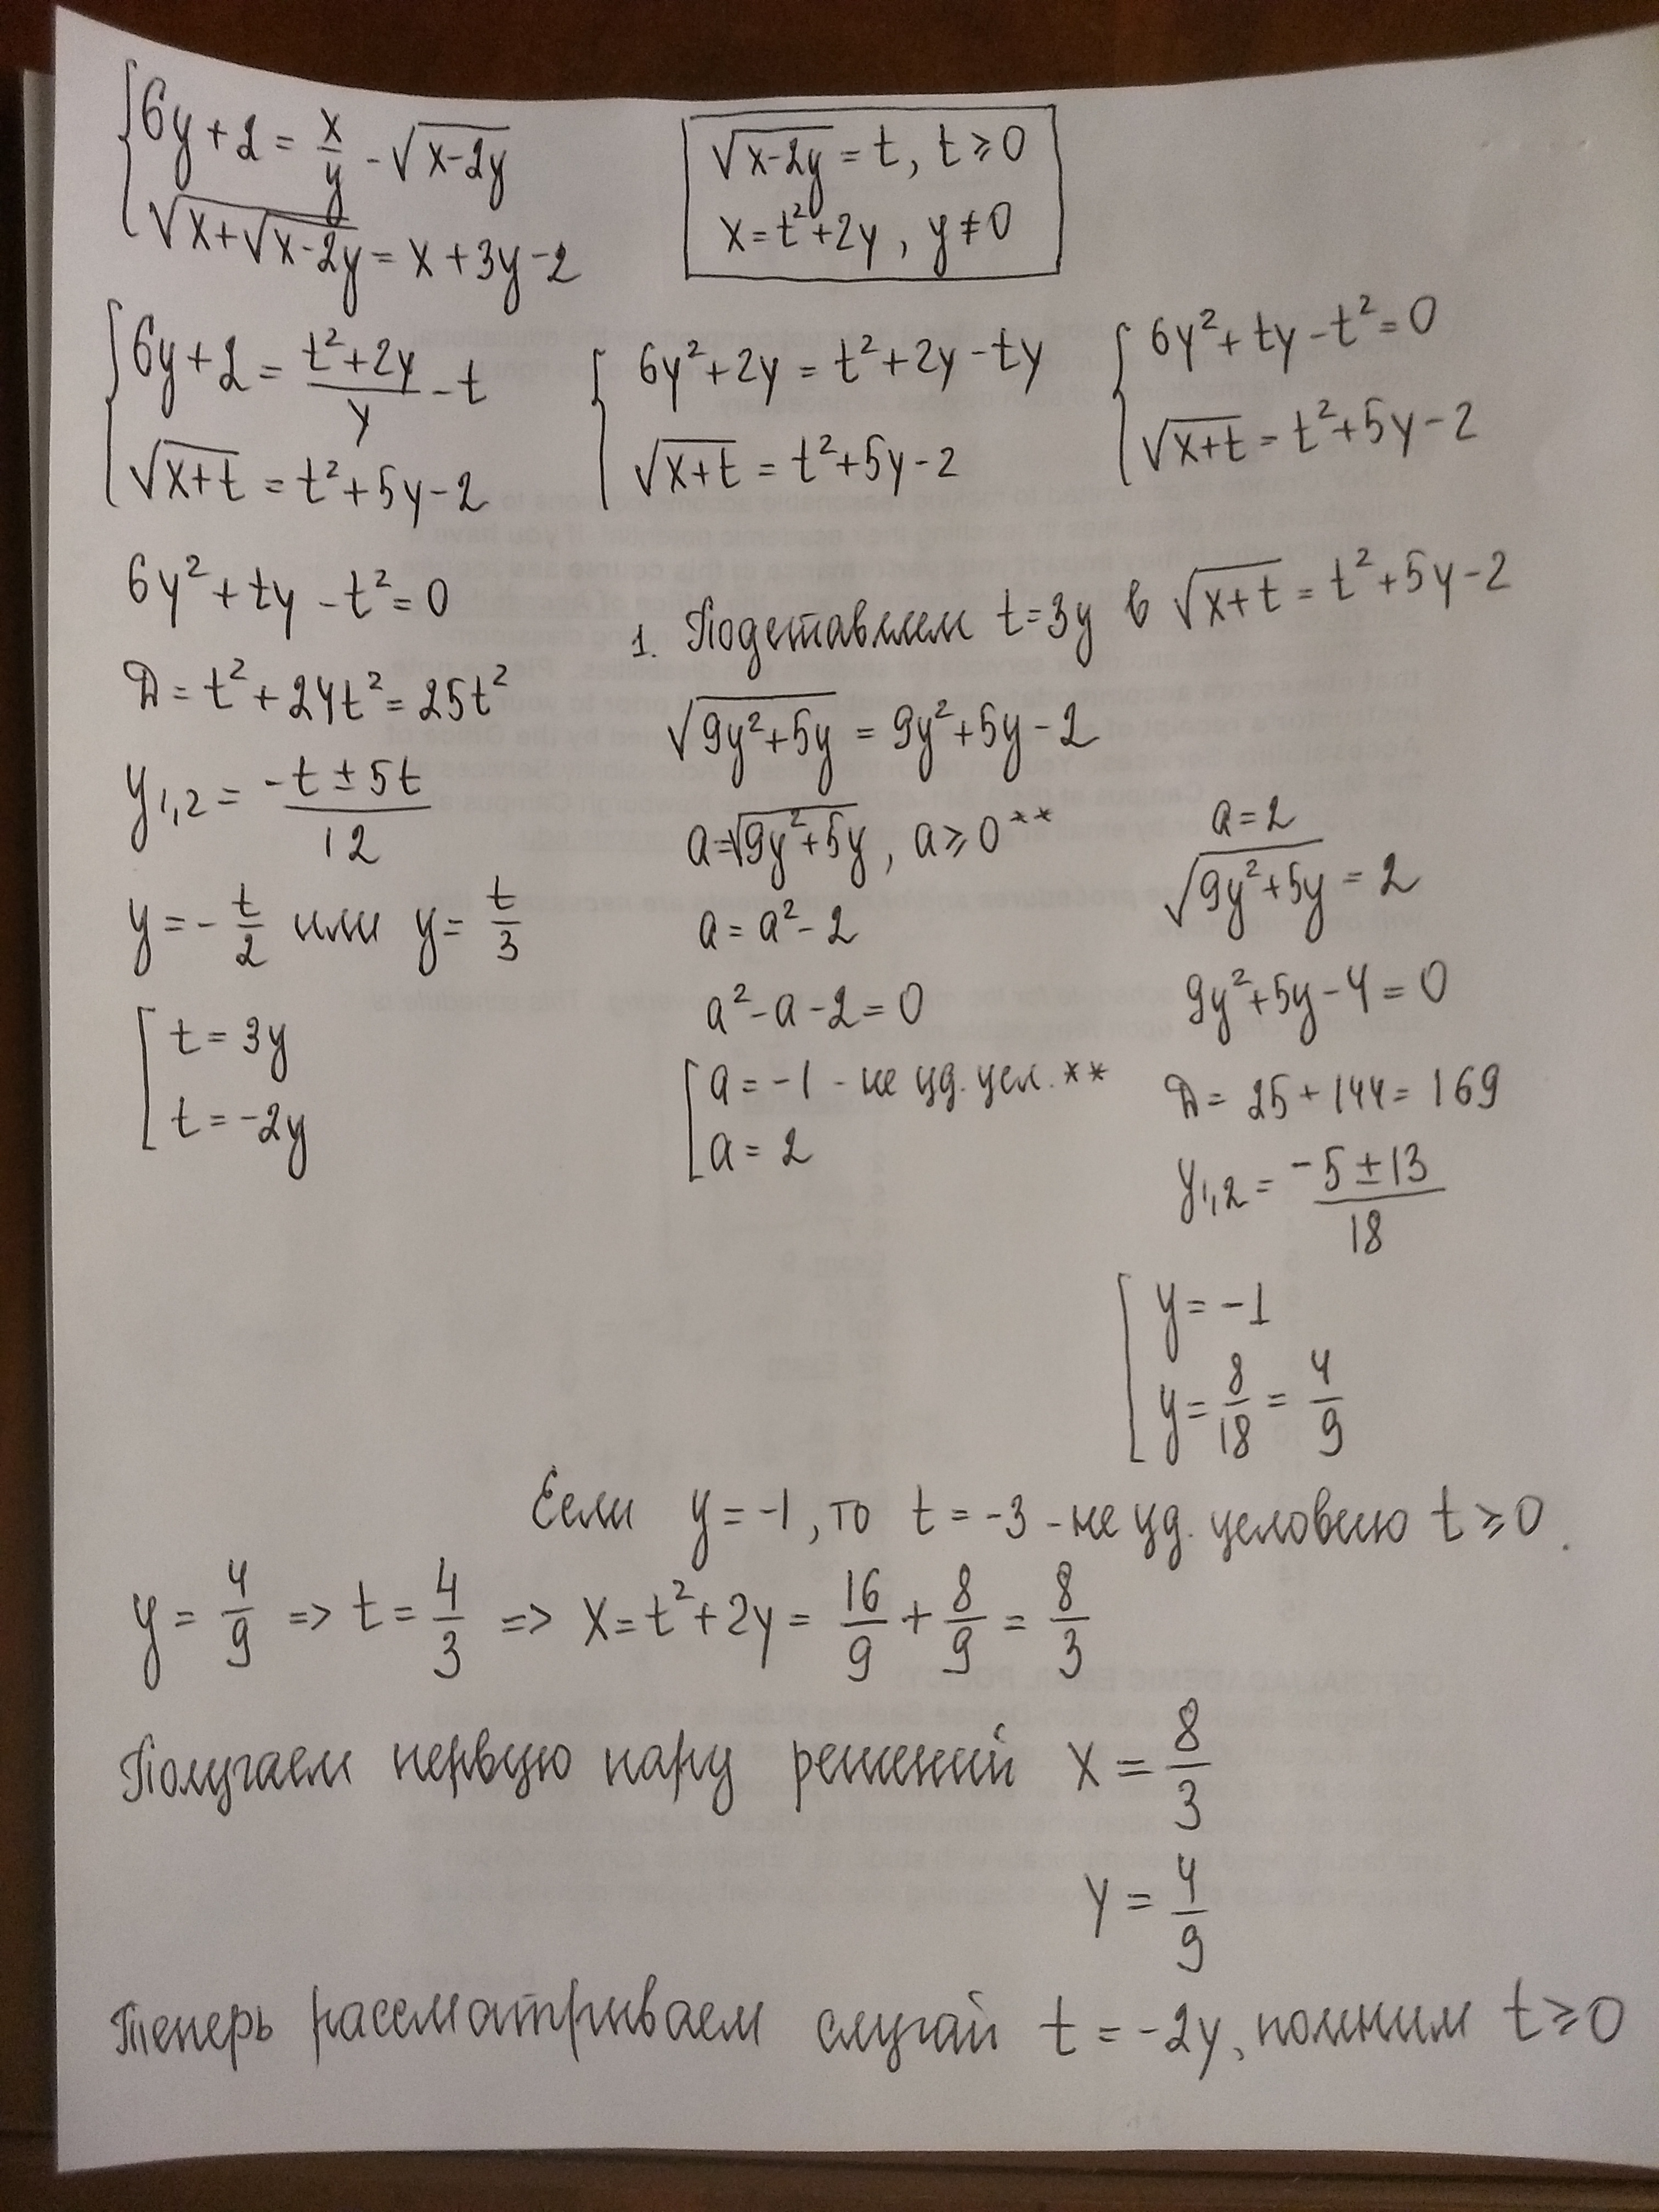 {6y+2 = x/y - √(x-2y)
√(x+√(x-2y)) = x+3y-2
√(x-2y) = t, t ≥ 0
x = t²+2y, y ≠ 0
{6y+2 = (t²+2y)/y - t
√(x+t) = t²+5y-2
{6y²+2y = t²+2y-ty
√(x+t) = t²+5y-2
{6y²+ty-t² = 0
√(x+t) = t²+5y-2
6y²+ty-t² = 0
D = t²+24t² = 25t²
y1,2 = (-t ± 5t)/12
y = -t/2 или y = t/3
[t = 3y
t = -2y
1. Подставляем t=3y в √(x+t) = t²+5y-2
√(9y²+5y) = 9y²+5y-2
a = √(9y²+5y), a ≥ 0**
a = a²-2
a²-a-2 = 0
[a = -1 - не уд. усл. **
a = 2
a = 2
√(9y²+5y) = 2
9y²+5y-4 = 0
D = 25+144 = 169
y1,2 = (-5 ± 13)/18
[y = -1
y = 8/18 = 4/9
Если y = -1, то t = -3 - не уд. условию t ≥ 0.
y = 4/9 => t = 4/3 => x = t²+2y = 16/9 + 8/9 = 8/3
Получаем первую пару решений x = 8/3
y = 4/9
Теперь рассматриваем случай t = -2y, помним t ≥ 0